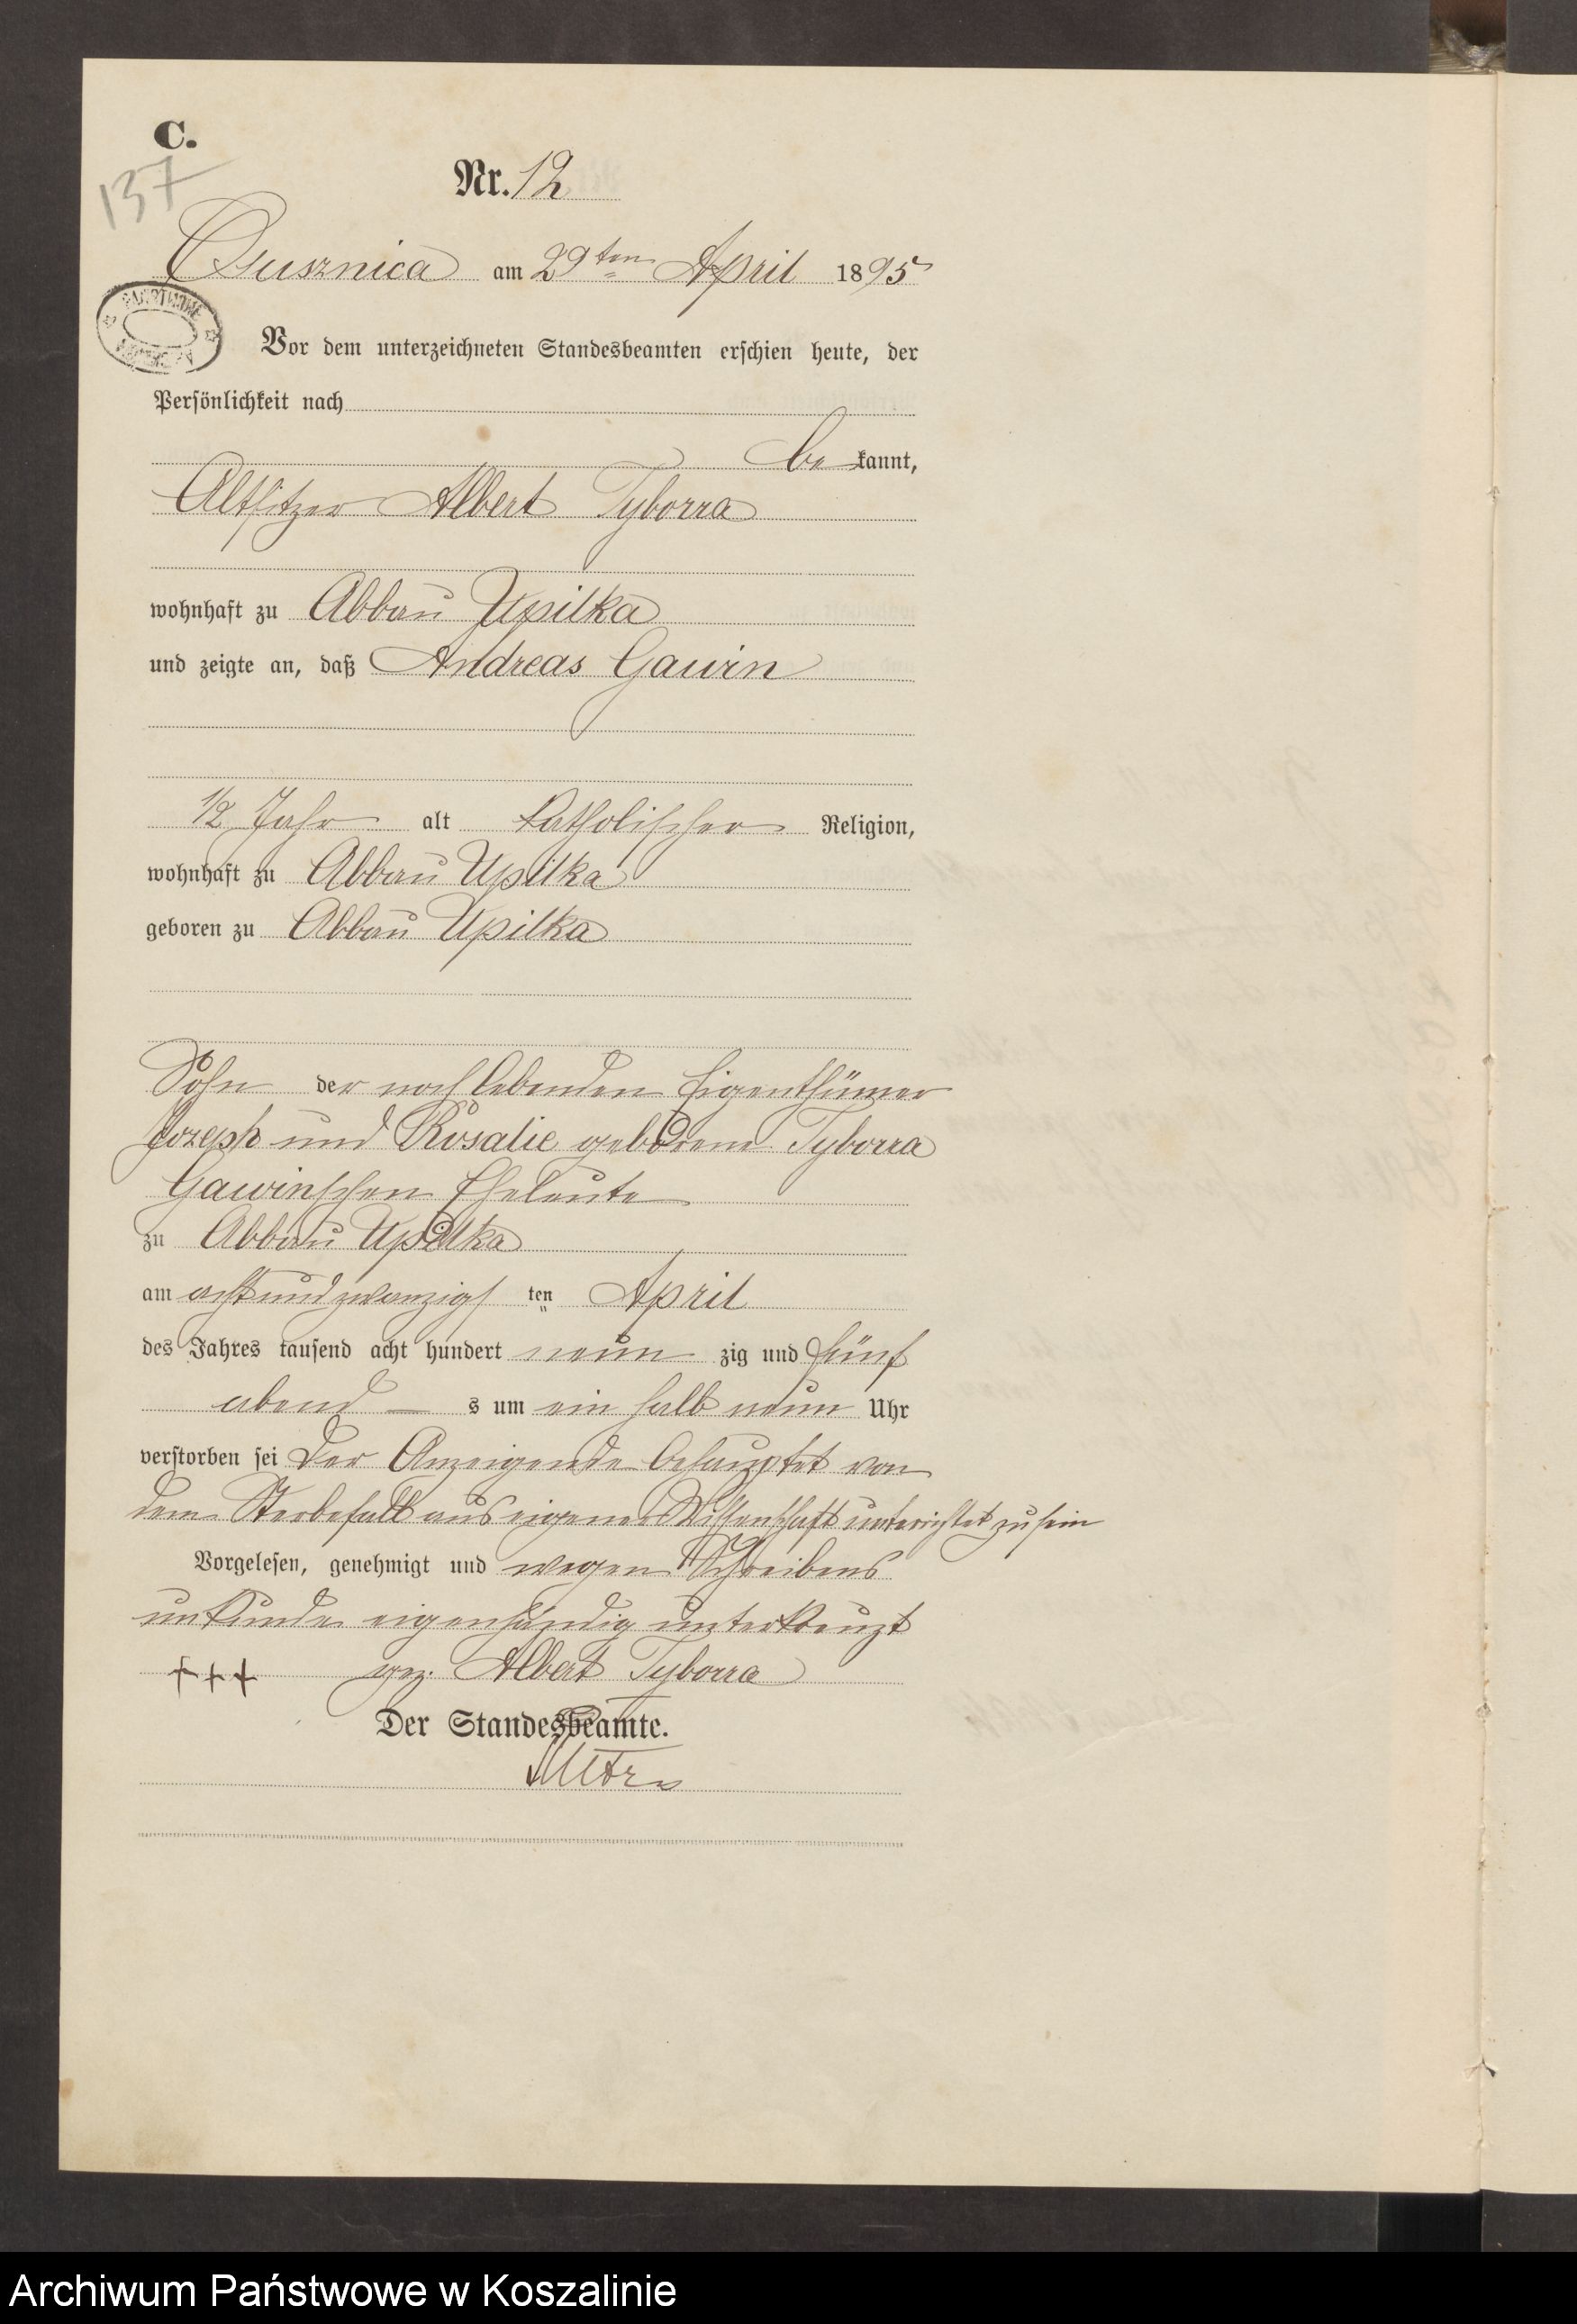 C.
137
Nr. 12
Osusznica am 29ten April 1895
Vor dem unterzeichneten Standesbeamten erschien heute, der
Persönlichkeit nach
be kannt,
Altsitzer Albert Tyborra
wohnhaft zu Abbau Upilka
und zeigte an, daß Andreas Gawin
1/2 Jahr alt katholischer Religion,
wohnhaft zu Abbau Upilka
geboren zu Abbau Upilka
Sohn der noch lebenden Eigenthümer
Jozeph und Rosalie geborene Tyborra
Gawinschen Eheleute
zu Abbau Upilka
am acht und zwanzigs ten April
des Jahres tausend acht hundert neun zig und fünf
abend — s um ein halb neun Uhr
verstorben sei Der Anzeigende behauptet von
dem Sterbefall aus eigener Wissenschaft unterichtet zu sein
Vorgelesen, genehmigt und wegen Schreibens
unkunde eigenhändig unterkreuzt
+++ gez. Albert Tyborra
Der Standesbeamte.
Archiwum Państwowe w Koszalinie